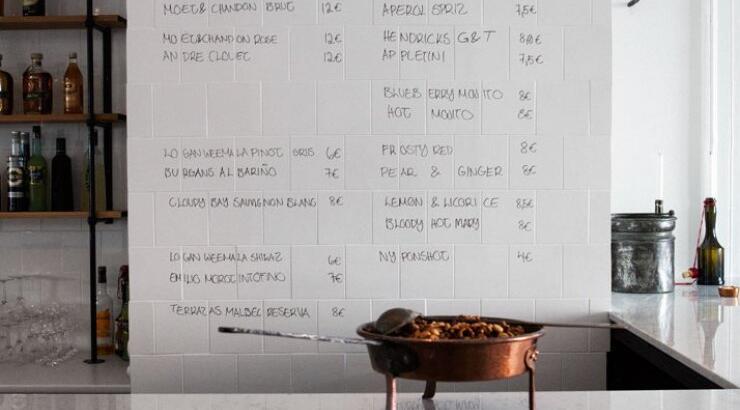 MOET & CHANDON BRUT 12€
MOET & CHANDON ROSE 12€
ANDRE CLOUET 12€
LOGAN WEEMALA PINOT GRIS 6€
BURGANS ALBARIÑO 7€
CLOUDY BAY SAUVIGNON BLANC 8€
LOGAN WEEMALA SHIRAZ 6€
EMILIO MORO TINTO FINO 7€
TERRAZAS MALBEC RESERVA 8€
APEROL SPRITZ 7,5€
HENDRICKS G&T
APPLETINI 7,5€
BLUEBERRY MOJITO 8€
HOT MOJITO 8€
FROSTY RED 8€
PEAR & GINGER 8€
LEMON & LICORICE 8,5€
BLOODY HOT MARY 8€
NY PONSHOT 4€